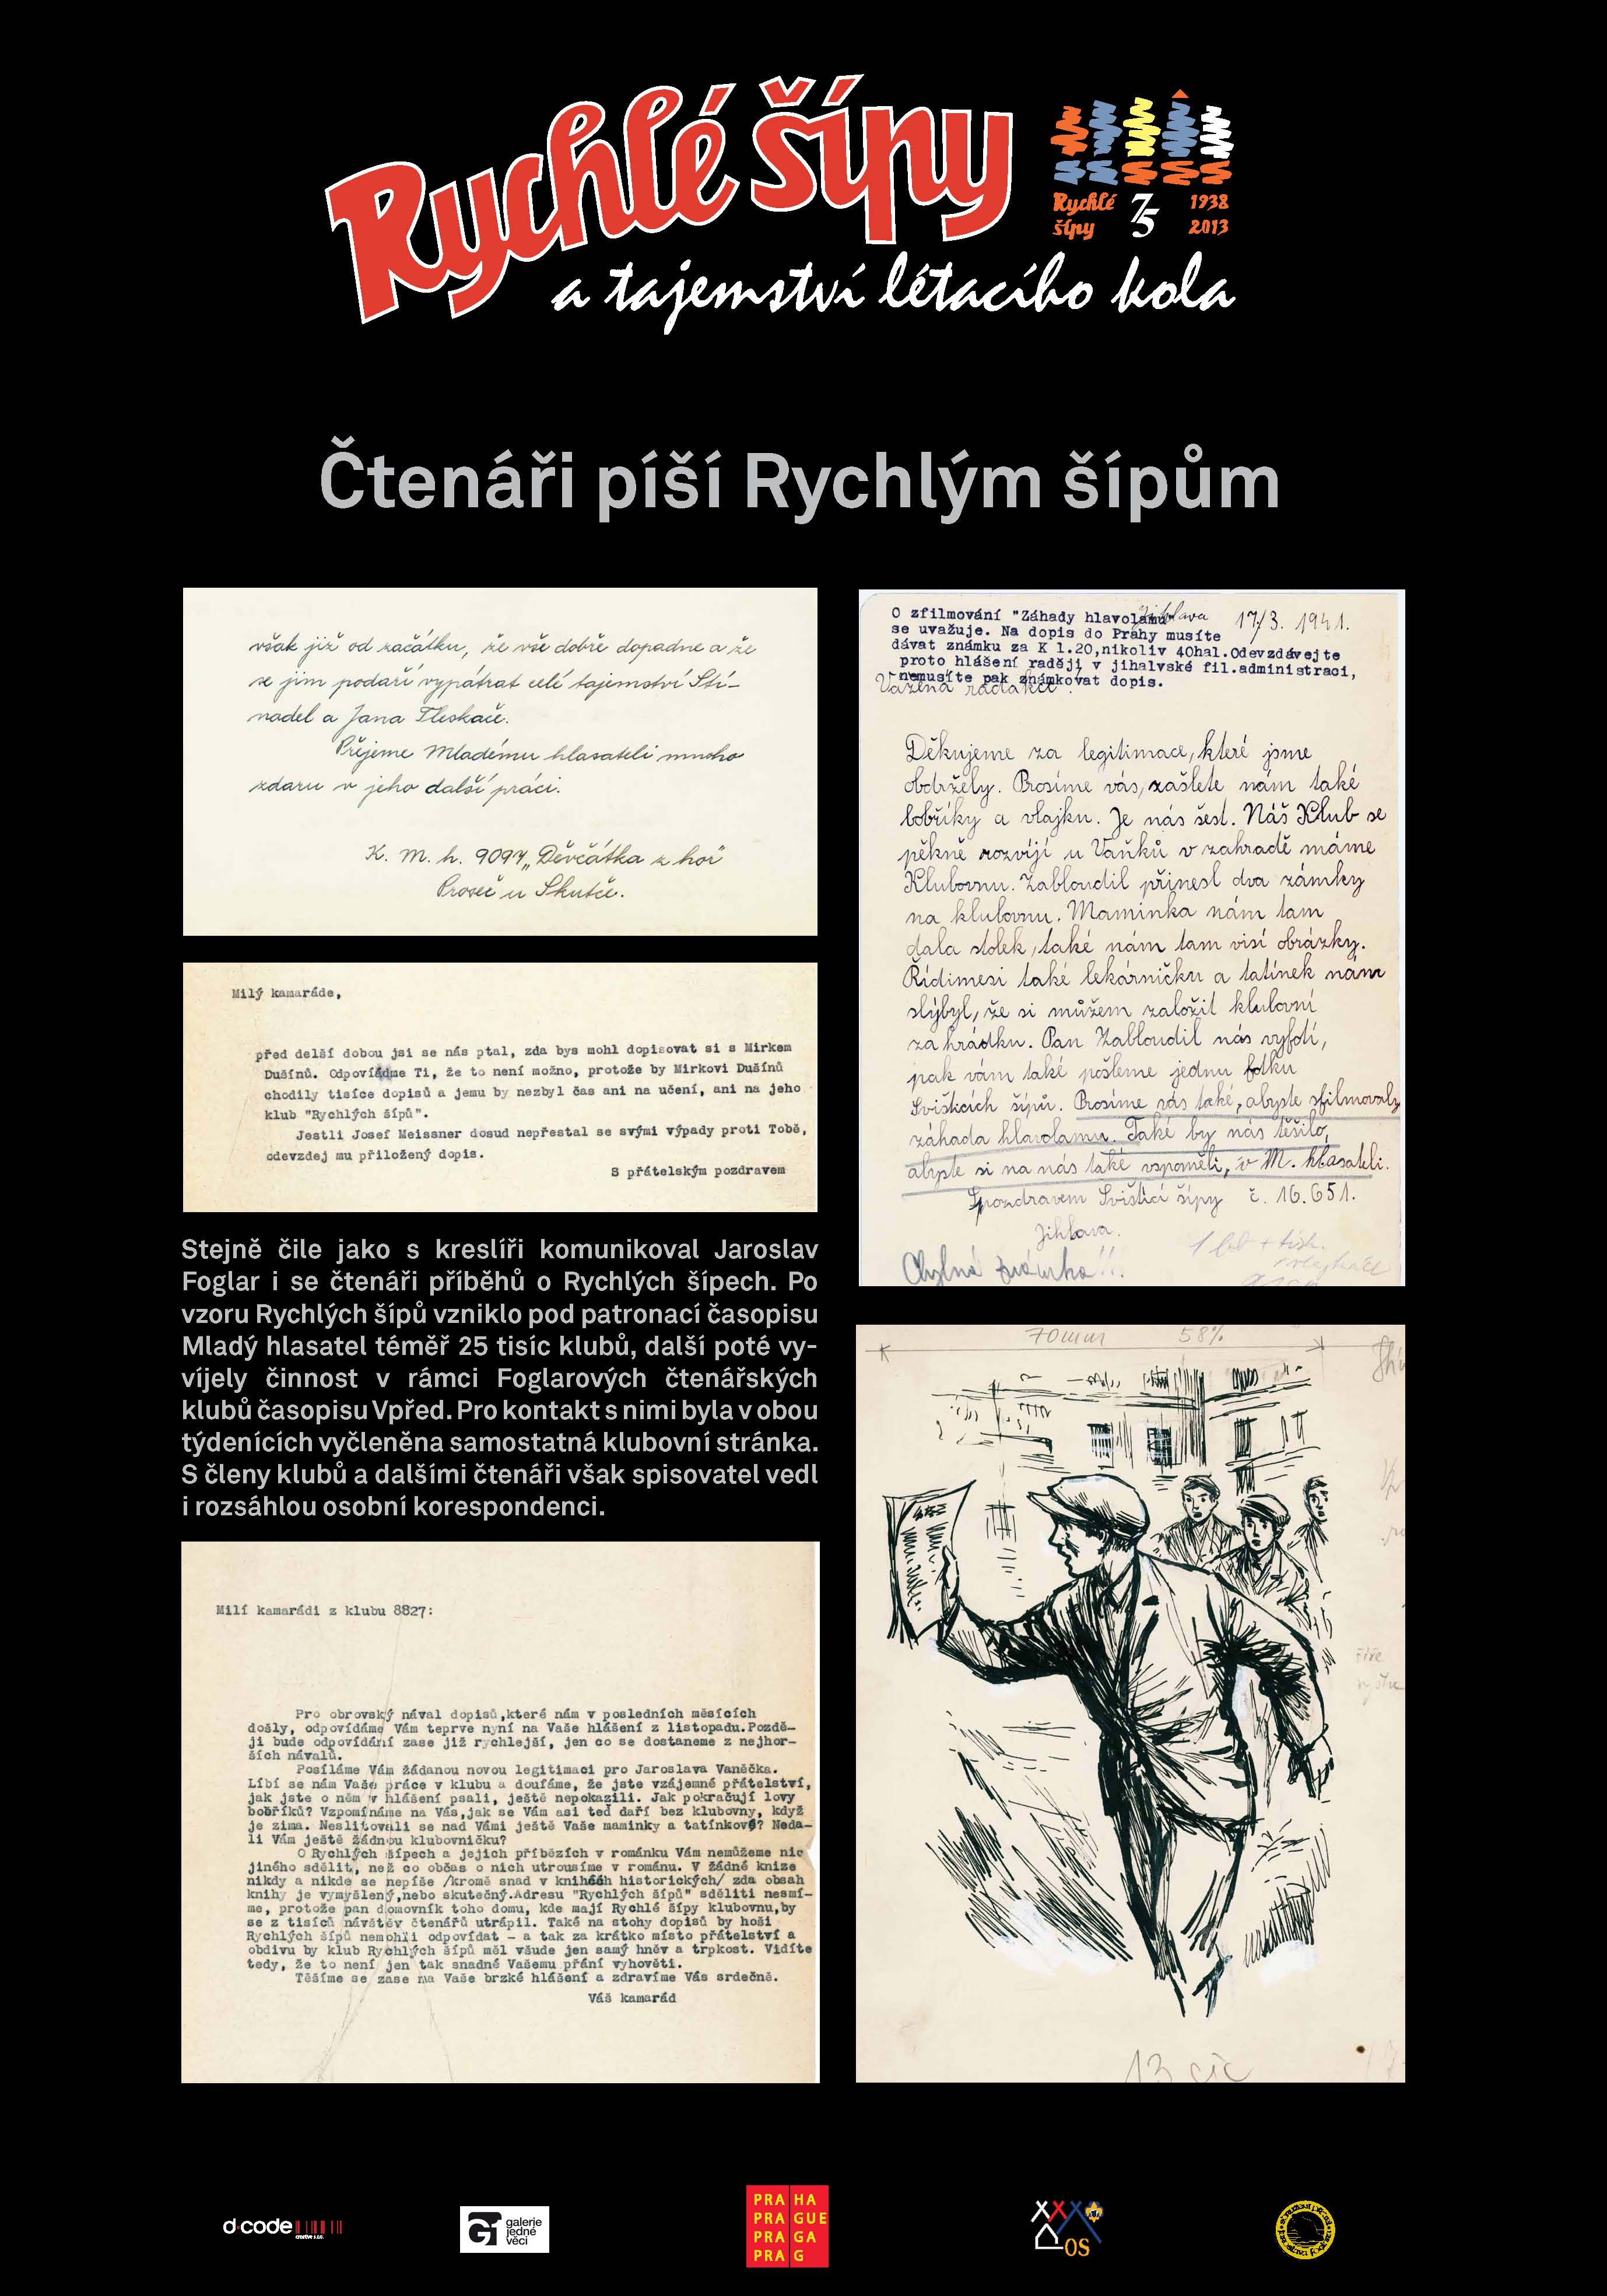 Rychlé šípy
Rychlé 75 1938
šípy 2013
a tajemství létacího kola
Čtenáři píší Rychlým šípům
však již od začátku, že vše dobře dopadne a že
se jim podaří vypátrat celé tajemství Stí-
nadel a Jana Tleskače.
Přejeme Mladému hlasateli mnoho
zdaru v jeho další práci.
K. m. h. 9097 „Děvčátka z hor"
Proseč u Skutče.
Milý kamaráde,
před delší dobou jsi se nás ptal, zda bys mohl dopisovat si s Mirkem
Dušínů. Odpovídáme Ti, že to není možno, protože by Mirkovi Dušínů
chodily tisíce dopisů a jemu by nezbyl čas ani na učení, ani na jeho
klub "Rychlých šípů".
Jestli Josef Meissner dosud nepřestal se svými výpady proti Tobě,
odevzdej mu přiložený dopis.
S přátelským pozdravem
Stejně čile jako s kreslíři komunikoval Jaroslav
Foglar i se čtenáři příběhů o Rychlých šípech. Po
vzoru Rychlých šípů vzniklo pod patronací časopisu
Mladý hlasatel téměř 25 tisíc klubů, další poté vy-
víjely činnost v rámci Foglarových čtenářských
klubů časopisu Vpřed. Pro kontakt s nimi byla v obou
týdenících vyčleněna samostatná klubovní stránka.
S členy klubů a dalšími čtenáři však spisovatel vedl
i rozsáhlou osobní korespondenci.
Milí kamarádi z klubu 8827:
Pro obrovský nával dopisů,které nám v posledních měsících
došly, odpovídáme Vám teprve nyní na Vaše hlášení z listopadu.Pozdě-
ji bude odpovídání zase již rychlejší, jen co se dostaneme z nejhor-
ších návalů.
Posíláme Vám žádanou novou legitimaci pro Jaroslava Vaněčka.
Líbí se nám Vaše práce v klubu a doufáme, že jste vzájemné přátelství,
jak jste o něm v hlášení psali, ještě nepokazili. Jak pokračují lovy
bobříků? Vzpomínáme na Vás,jak se Vám asi teď daří bez klubovny, když
je zima. Neslitovali se nad Vámi ještě Vaše maminky a tatínkové? Neda-
li Vám ještě žádnou klubovničku?
O Rychlých šípech a jejich příbězích v románku Vám nemůžeme nic
jiného sdělit, než co občas o nich utrousíme v románu. V žádné knize
nikdy a nikde se nepíše /kromě snad v knihách historických/ zda obsah
knihy je vymyšlený,nebo skutečný.Adresu "Rychlých šípů" sděliti nesmí-
me, protože pan domovník toho domu, kde mají Rychlé šípy klubovnu,by
se z tisíců návštěv čtenářů utrápil. Také na stohy dopisů by hoši
Rychlých šípů nemohli odpovídat - a tak za krátko místo přátelství a
obdivu by klub Rychlých šípů měl všude jen samý hněv a trpkost. Vidíte
tedy, že to není jen tak snadné Vašemu přání vyhověti.
Těšíme se zase na Vaše brzké hlášení a zdravíme Vás srdečně.
Váš kamarád
O zfilmování "Záhady hlavolamu" Jihlava 17/3. 1941.
se uvažuje. Na dopis do Prahy musíte
dávat známku za K 1.20,nikoliv 40hal.Odevzdávejte
proto hlášení raději v jihalvské fil.administraci,
nemusíte pak známkovat dopis.
Vážená radakce
Děkujeme za legitimace, které jsme
obdržely. Prosíme vás, zašlete nám také
bobříky a vlajku. Je nás šest. Náš Klub se
pěkně rozvíjí u Vaňků v zahradě máme
Klubovnu. Zabloudil přinesl dva zámky
na klubovnu. Maminka nám tam
dala stolek, také nám tam visí obrázky.
Řídimesi také lekárničku a tatínek nám
slýbyl, že si můžem založit klubovní
zahrádku. Pan Zabloudil nás vyfotí,
pak vám také pošleme jednu fotku
Svištících šípů. Prosíme vás také, abyste sfilmovaly
záhada hlavolamu. Také by nás těšilo,
abyste si na nás také vspoměli, v M. hlasateli.
Spozdravem Svištící šípy č. 16.651.
Jihlava.
Chybná známka!!!
70mm 58%
d·code
creative s.r.o.
G1 galerie
jedné
věci
PRA HA
PRA GUE
PRA GA
PRA G
OS